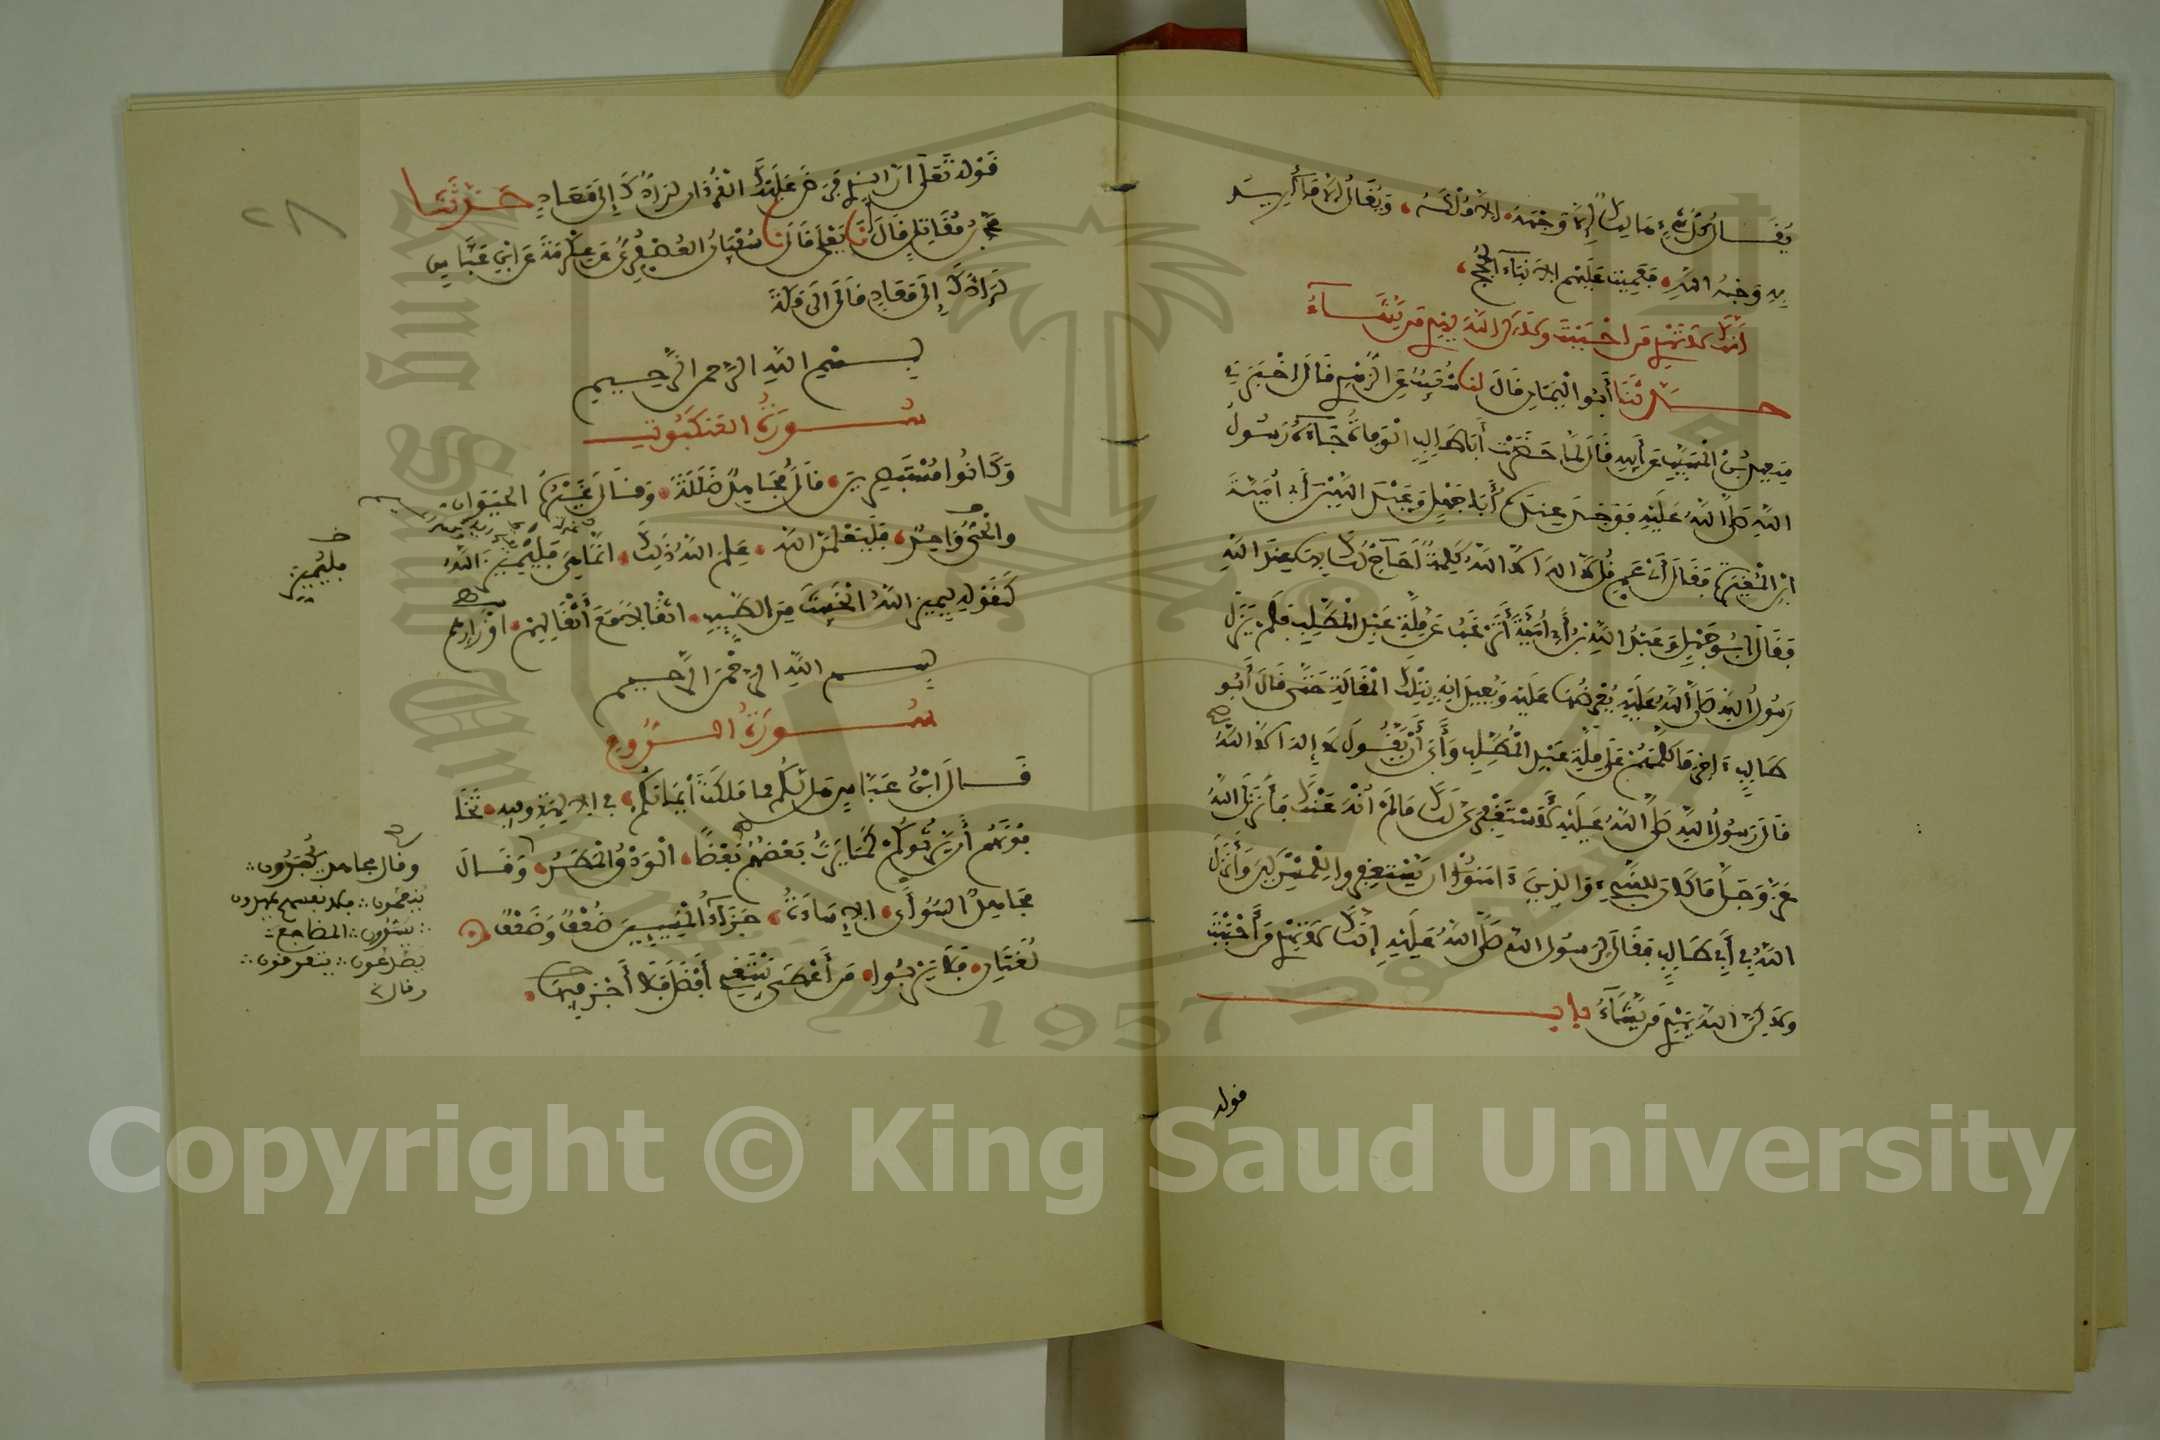 يُقَالُ كُلُّ شَيْءٍ هَالِكٌ إِلَّا وَجْهَهُ إِلَّا مُلْكَهُ وَيُقَالُ إِلَّا مَا أُرِيدَ
بِهِ وَجْهُ اللَّهِ فَعَمِيَتْ عَلَيْهِمُ الْأَنْبَاءُ الْحُجَجُ
إِنَّكَ لَا تَهْدِي مَنْ أَحْبَبْتَ وَلَكِنَّ اللَّهَ يَهْدِي مَنْ يَشَاءُ
حَدَّثَنَا أَبُو الْيَمَانِ قَالَ أنا شُعَيْبٌ عَنِ الزُّهْرِيِّ قَالَ أَخْبَرَنِي
سَعِيدُ بْنُ الْمُسَيَّبِ عَنْ أَبِيهِ قَالَ لَمَّا حَضَرَتْ أَبَا طَالِبٍ الْوَفَاةُ جَاءَهُ رَسُولُ
اللَّهِ صَلَّى اللَّهُ عَلَيْهِ فَوَجَدَ عِنْدَهُ أَبَا جَهْلٍ وَعَبْدَ اللَّهِ بْنَ أَبِي أُمَيَّةَ
ابْنِ الْمُغِيرَةِ فَقَالَ أَيْ عَمِّ قُلْ لَا إِلَهَ إِلَّا اللَّهُ كَلِمَةً أُحَاجُّ لَكَ بِهَا عِنْدَ اللَّهِ
فَقَالَ أَبُو جَهْلٍ وَعَبْدُ اللَّهِ بْنُ أَبِي أُمَيَّةَ أَتَرْغَبُ عَنْ مِلَّةِ عَبْدِ الْمُطَّلِبِ فَلَمْ يَزَلْ
رَسُولُ اللَّهِ صَلَّى اللَّهُ عَلَيْهِ يَعْرِضُهَا عَلَيْهِ وَيُعِيدَانِهِ بِتِلْكَ الْمَقَالَةِ حَتَّى قَالَ أَبُو
طَالِبٍ آخِرَ مَا كَلَّمَهُمْ عَلَى مِلَّةِ عَبْدِ الْمُطَّلِبِ وَأَبَى أَنْ يَقُولَ لَا إِلَهَ إِلَّا اللَّهُ
قَالَ رَسُولُ اللَّهِ صَلَّى اللَّهُ عَلَيْهِ لَأَسْتَغْفِرَنَّ لَكَ مَا لَمْ أُنْهَ عَنْكَ فَأَنْزَلَ اللَّهُ
عَزَّ وَجَلَّ مَا كَانَ لِلنَّبِيِّ وَالَّذِينَ آمَنُوا أَنْ يَسْتَغْفِرُوا لِلْمُشْرِكِينَ وَأَنْزَلَ
اللَّهُ فِي أَبِي طَالِبٍ فَقَالَ لِرَسُولِ اللَّهِ صَلَّى اللَّهُ عَلَيْهِ إِنَّكَ لَا تَهْدِي مَنْ أَحْبَبْتَ
وَلَكِنَّ اللَّهَ يَهْدِي مَنْ يَشَاءُ بَاب
قوله
٢٨
قَوْلُهُ تَعَالَى إِنَّ الَّذِي فَرَضَ عَلَيْكَ الْقُرْآنَ لَرَادُّكَ إِلَى مَعَادٍ حَدَّثَنَا
مُحَمَّدُ بْنُ مُقَاتِلٍ قَالَ أنا يَعْلَى قَالَ نا سُفْيَانُ الْعُصْفُرِيُّ عَنْ عِكْرِمَةَ عَنِ ابْنِ عَبَّاسٍ
لَرَادُّكَ إِلَى مَعَادٍ قَالَ إِلَى مَكَّةَ
بِسْمِ اللَّهِ الرَّحْمَنِ الرَّحِيمِ
سُورَةُ الْعَنْكَبُوتِ
وَكَانُوا مُسْتَبْصِرِينَ قَالَ مُجَاهِدٌ ضَلَلَةً وَقَالَ غَيْرُهُ الْحَيَوَانُ
وَالْحَيُّ وَاحِدٌ فَلَيَعْلَمَنَّ اللَّهُ عَلِمَ اللَّهُ ذَلِكَ إِنَّمَا هِيَ فَلِيَمِيزَ اللَّهُ
فليميز
كَقَوْلِهِ لِيَمِيزَ اللَّهُ الْخَبِيثَ مِنَ الطَّيِّبِ أَثْقَالًا مَعَ أَثْقَالِهِمْ أَوْزَارِهِمْ
بِسْمِ اللَّهِ الرَّحْمَنِ الرَّحِيمِ
سُورَةُ الرُّومِ
قَالَ ابْنُ عَبَّاسٍ هَلْ لَكُمْ مِمَّا مَلَكَتْ أَيْمَانُكُمْ فِي الْآلِهَةِ وَفِيهِ تَخَا
فُونَهُمْ أَنْ يَرِثُوكُمْ كَمَا يَرِثُ بَعْضُهُمْ بَعْضًا الْوَدْقُ الْمَطَرُ وَقَالَ
مُجَاهِدٌ السُّوأَى الْإِسَاءَةُ جَزَاءُ الْمُسِيئِينَ ضُعْفٌ وَضَعْفٌ
لُغَتَانِ فَلَا يَرْبُوا مَنْ أَعْطَى يَبْتَغِي أَفْضَلَ فَلَا أَجْرَ فِيهَا
وقال مجاهد يُحْبَرُون
يُنعمون فلأنفسهم يمهدون
يسوون المضاجع
يصدعون يتفرقون
وقال
1957
Copyright © King Saud University